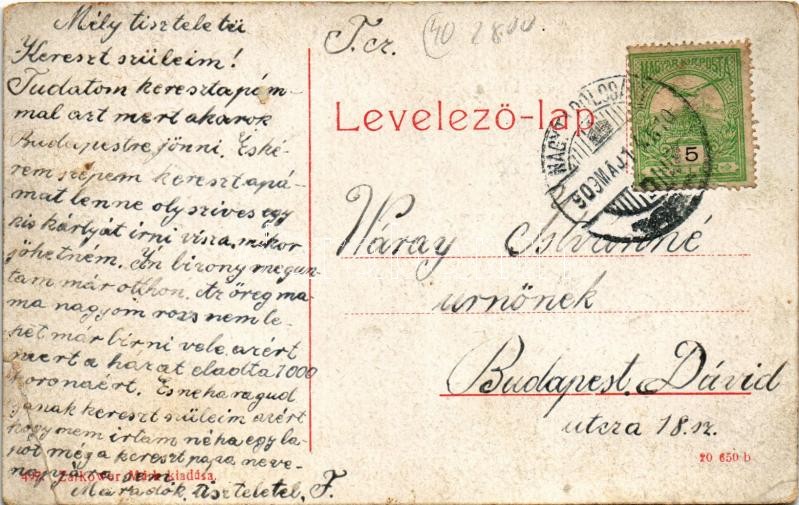 Mély tiszteletű
Kereszt szüleim!
Tudatom keresztapám-
mal azt mert akarok
Budapestre jönni. Es ké-
rem szépem keresztapá-
mat lenne oly szives egy
kis kártyát irni visza, mikor
jöhetném. Én bizony megun-
tam már otthon. Az öreg ma-
ma nagyom rozs nem le-
het már birni vele, azért
mert a házat eladta 1000
koronaért. Es ne haragud
janak kereszt szüleim azért
hogy nem irtam néha egy la-
pot még a kereszt papa neve-
napjára
Maradok, tisztelettel, F.
Zárkówer Márk kiadása.
T. cz.
40 28.00
Levelező-lap
MAGYAR KIR. POSTA
5
909 MÁJ 1
Váray Istvánné
urnőnek
Budapest. Dávid
utcza 18. sz.
20 650 b